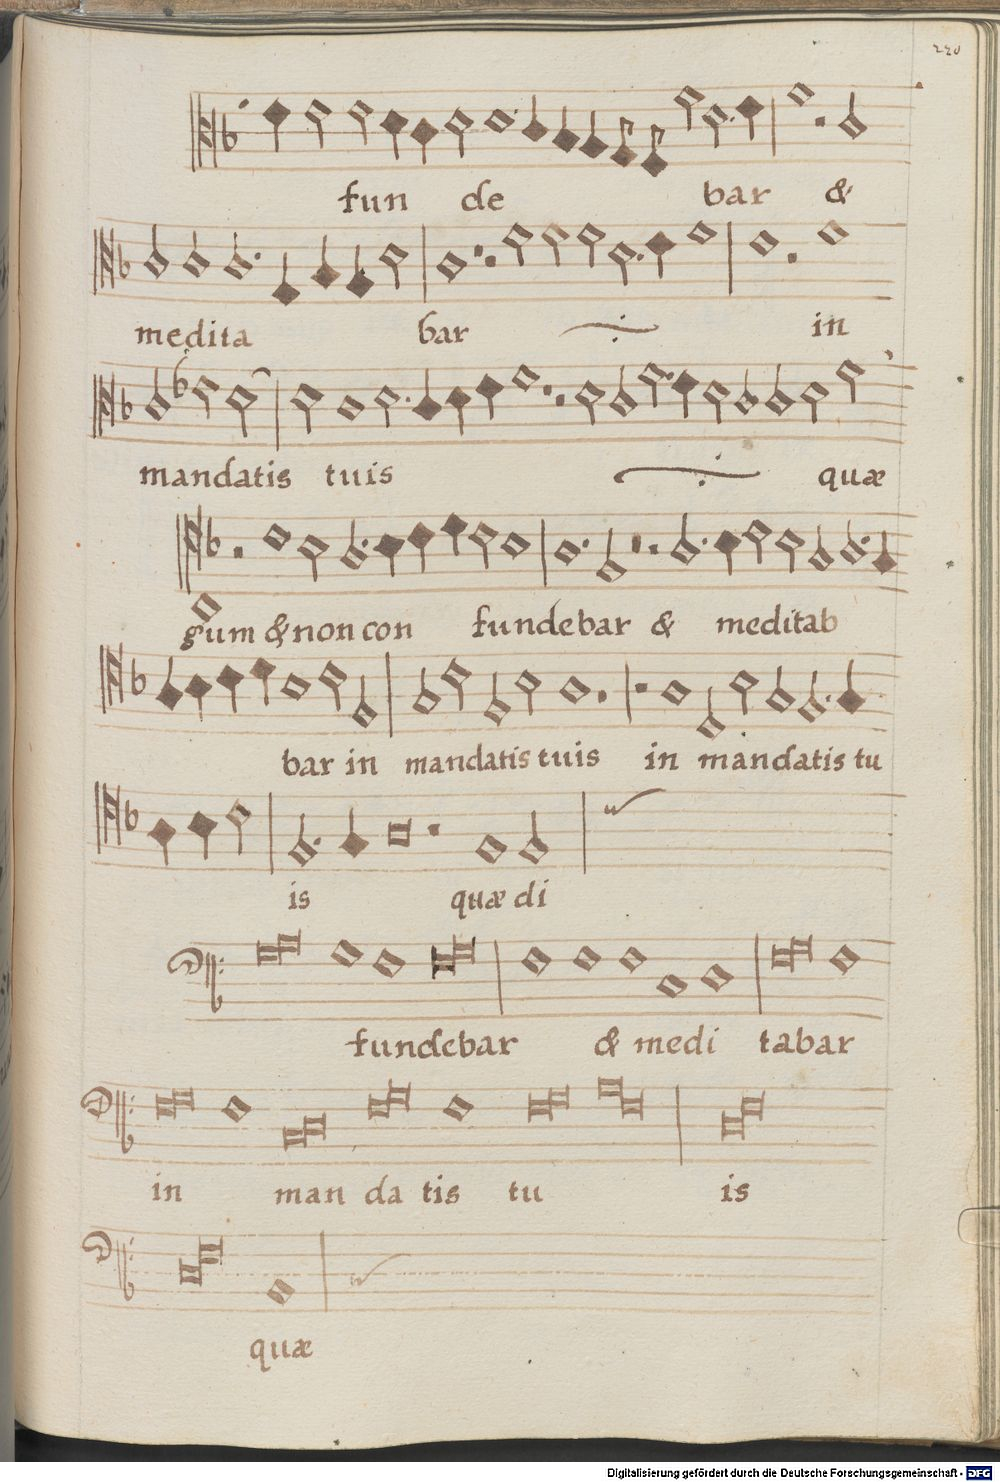 220
fun de bar &
medita bar in
mandatis tuis quæ
gum & non con fundebar & meditab
bar in mandatis tuis in mandatis tu
is quæ di
fundebar & medi tabar
in man da tis tu is
quæ
Digitalisierung gefördert durch die Deutsche Forschungsgemeinschaft - DFG